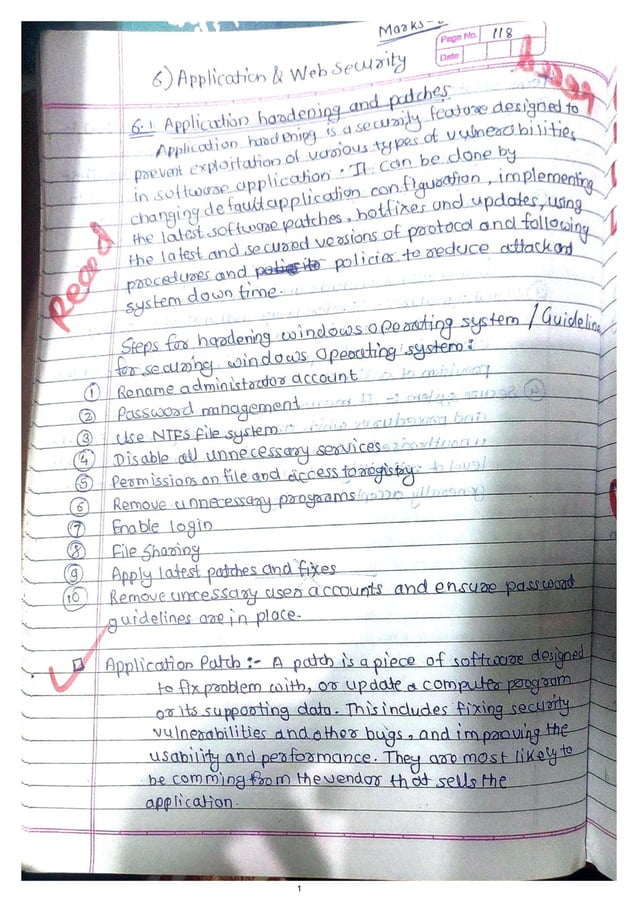 Marks-
Page No. 118
Date
6) Application & Web Security
Read
6.1 Application hardening and patches
Application hardening is a security feature designed to
prevent exploitation of various types of vulnerabilities
in software application. It can be done by
changing default application configuration, implementing
the latest software patches, hotfixes and updates, using
the latest and secured versions of protocol and following
procedures and policies to reduce attack and
system down time.
Read
Steps for hardening windows operating system / Guideline
for securing windows operating system:
① Rename administrator account
② Password management
③ Use NTFS file system
④ Disable all unnecessary services
⑤ Permissions on file and access to registry.
⑥ Remove unnecessary programs
⑦ Enable login
⑧ File sharing
⑨ Apply latest patches and fixes
⑩ Remove unecessary user accounts and ensure password
guidelines are in place.
Application Patch :- A patch is a piece of software designed
to fix problem with, or update a computer program
or its supporting data. This includes fixing security
vulnerabilities and other bugs, and improving the
usability and performance. They are most likely to
be comming from the vendor that sells the
application.
1